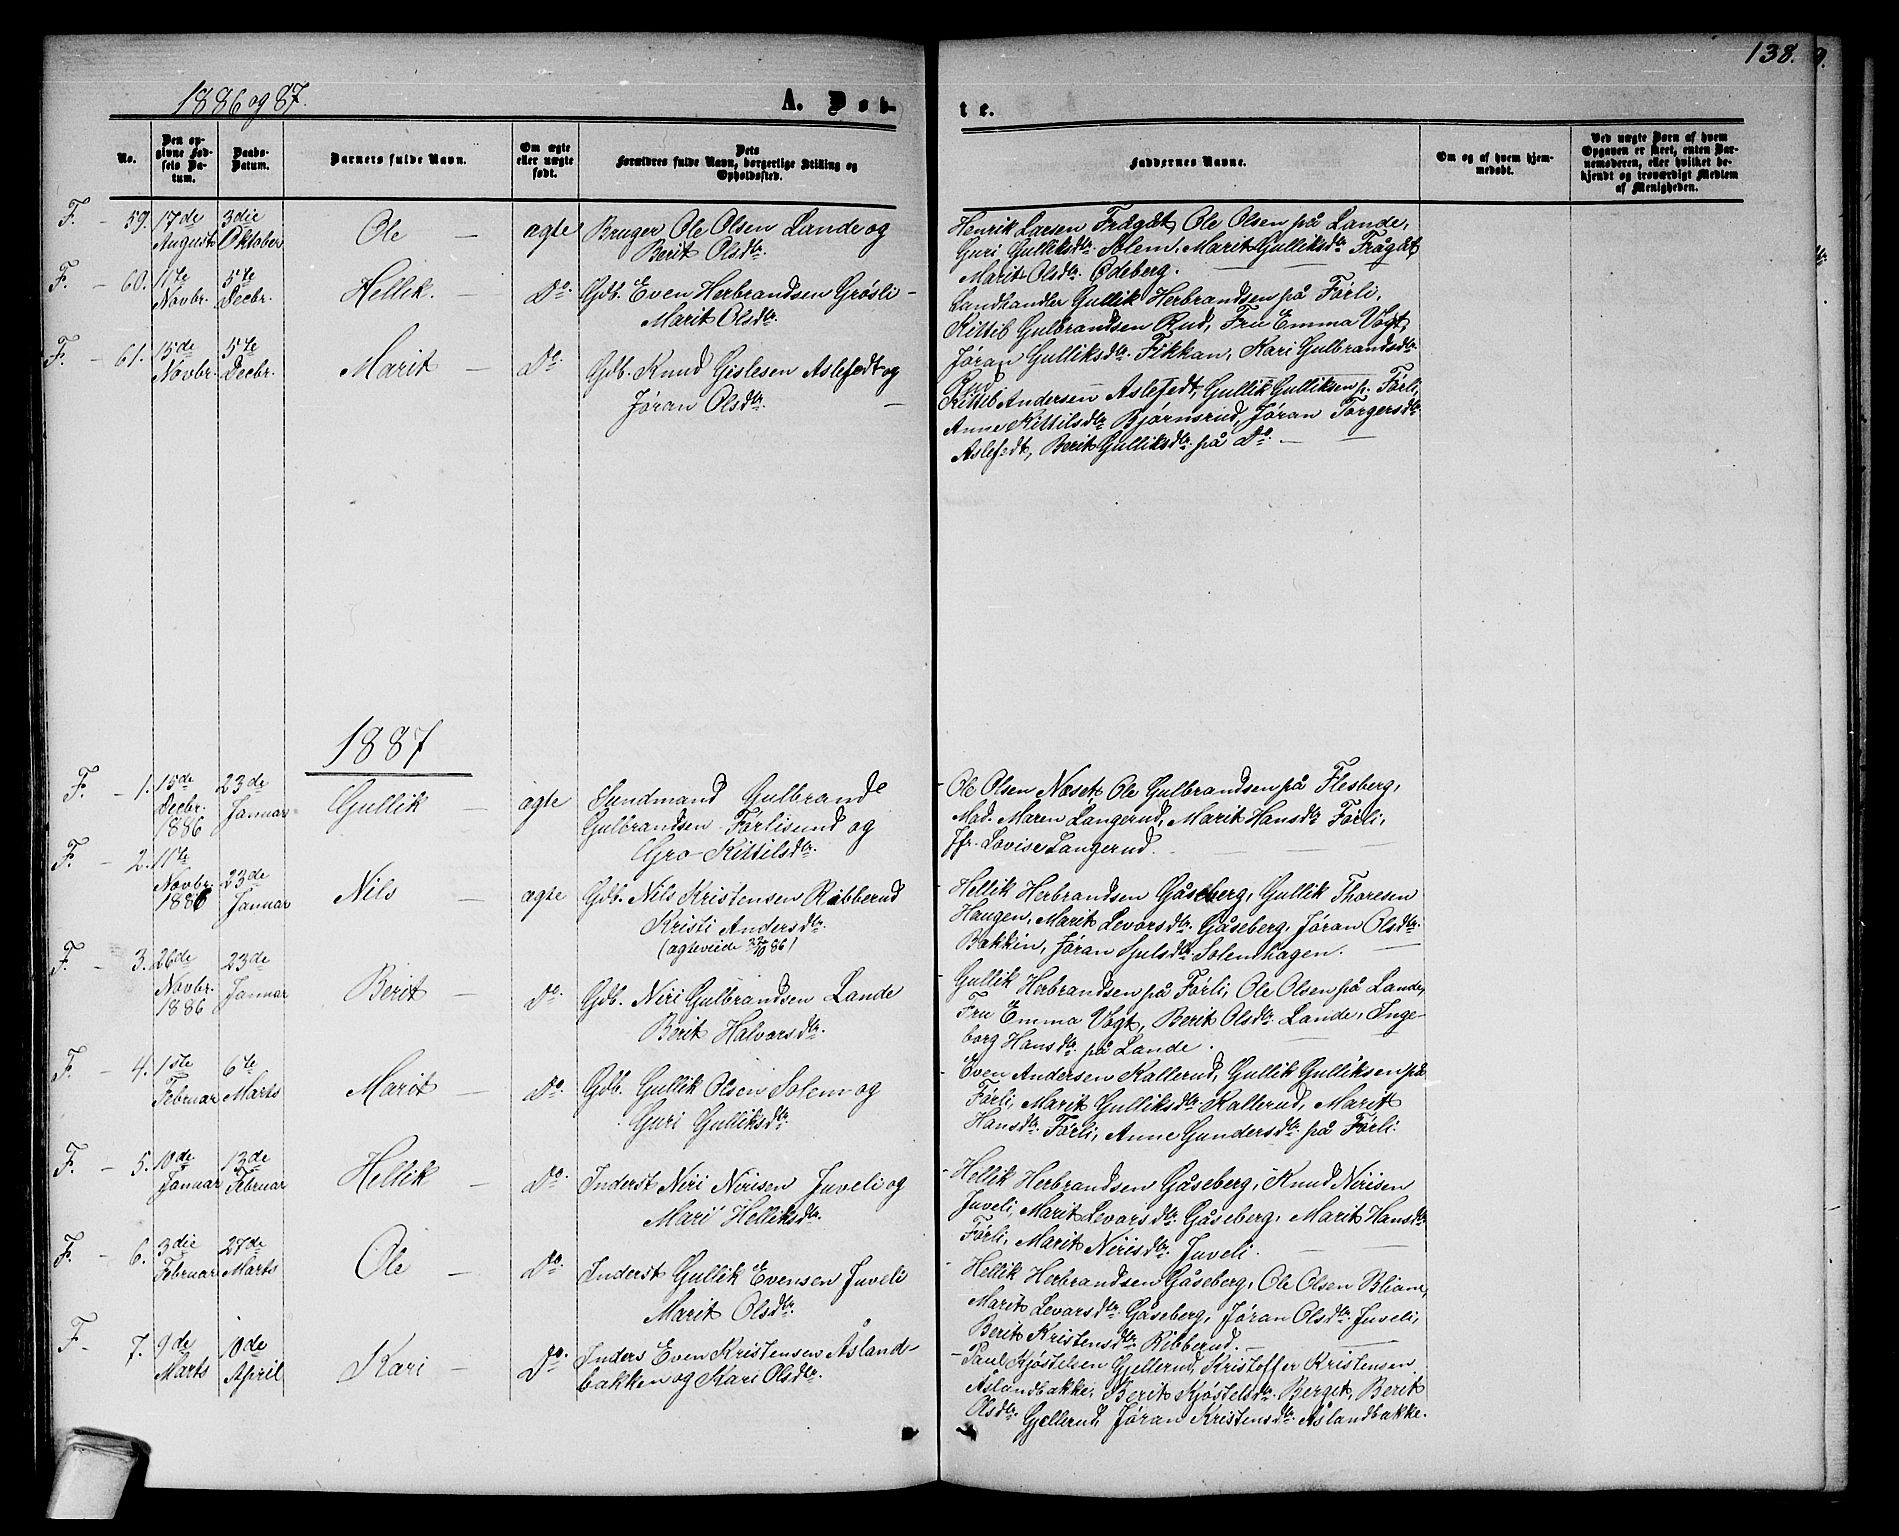 138.
1886 og 87.
A. Døb-
te.
No.
Den op-
givne Fød-
sels Da-
tum.
Daabs-
Datum.
Barnets fulde Navn.
Om ægte
eller uægte
født.
Dets
Forældres fulde Navn, borgerlige Stilling og
Opholdssted.
Faddernes Navne.
Om og af hvem hjem-
medøbt.
Ved uægte Børn af hvem
Opgaven er skeet, enten Bar-
nemoderen, eller hvilket be-
kjendt og troværdigt Medlem
af Menigheden.
F. - 59. 17de August 3die Oktober Ole - ægte Bruger Ole Olsen Lande og
Berit Olsdtr.
Henrik Larsen Frågåt, Ole Olsen på Lande,
Guri Gulliksdtr. Solem, Marit Gulliksdtr. Frågåt,
Marit Olsdtr. Ødeberg.
F. - 60. 11te Novbr. 5te Decbr. Hellik. - Do. Gdb. Even Herbrandsen Grøsli -
Marit Olsdtr.
Landhandler Gullik Herbrandsen på Førli,
Kittil Gulbrandsen Rud, Fru Emma Vogt,
Jøran Gulliksdtr. Fikkan, Kari Gulbrandsdtr.
Rud
F. - 61. 15de Novbr. 5te Decbr. Marit - Do. Gdb. Knud Gislesen Aslefedt og
Jøran Olsdtr. -
Kittil Andersen Aslefedt, Gullik Gulliksen p. Førli,
Anne Kittilsdtr. Bjørnsrud, Jøran Torgersdtr.
Aslefedt, Berit Gulliksdtr. på Do. -
1887
F. - 1. 15de Decbr. 1886 23de Januar Gullik - ægte Sundmand Gulbrand
Gulbrandsen Førlisund og
Gro Kittilsdtr.
- Ole Olsen Næset, Ole Gulbrandsen på Flesberg,
Mad. Maren Langerud, Marit Hansdtr. Førli,
Jfr. Lovise Langerud.
F. - 2. 11te Novbr. 1886 23de Januar Nils - ægte Gdb. Nils Kristensen Ribberud
Kristi Andersdtr.
(ægteviede 22/10 86)
- Hellik Herbrandsen Gåseberg, Gullik Thoresen
Haugen, Marit Levorsdtr. Gåseberg, Jøran Olsdtr.
Bakkin, Jøran Sjulsdtr. Solemhagen.
F. - 3. 26de Novbr. 1886 23de Januar Berit - Do. Gdb. Niri Gulbrandsen Lande
Berit Halvorsdtr.
Gullik Herbrandsen på Førli, Ole Olsen på Lande,
Fru Emma Vogt, Berit Olsdtr. Lande, Inge-
borg Hansdtr. på Lande.
F. - 4. 1ste Februar 6te Marts Marit - Do. Gdb. Gullik Olsen Solem og
Guri Gulliksdtr.
- Even Andersen Kallerud, Gullik Gulliksen på
Førli, Marit Gulliksdtr. Kallerud, Marit
Hansdtr. Førli, Anne Gundersdtr. på Førli.
F. - 5. 10de Januar 13de Februar Hellik - Do. Inderst Niri Nirisen Juveli og
Mari Helliksdtr.
- Hellik Herbrandsen Gåseberg, Knud Nirisen
Juveli, Marit Levorsdtr. Gåseberg, Marit Hansdtr
Førli, Marit Nirisdtr. Juveli.
F. - 6. 3die Februar 27de Marts Ole - Do. Inderst Gullik Evensen Juveli
Marit Olsdtr
- Hellik Herbrandsen Gåseberg, Ole Olsen Bliom,
Marit Levorsdtr. Gåseberg, Jøran Olsdtr. Juveli,
Berit Kristensdtr. Ribberud.
F. - 7. 9de Marts 10de April Kari - Do. Inders Even Kristensen Åsland-
bakken og Kari Olsdtr.
- Paul Kjøstelsen Gjellerud, Kristoffer Kristensen
Åslandbakke, Berit Kjøstelsdtr. Berget, Berit
Olsdtr. Gjellerud, Jøran Kristensdtr. Åslandbakke.